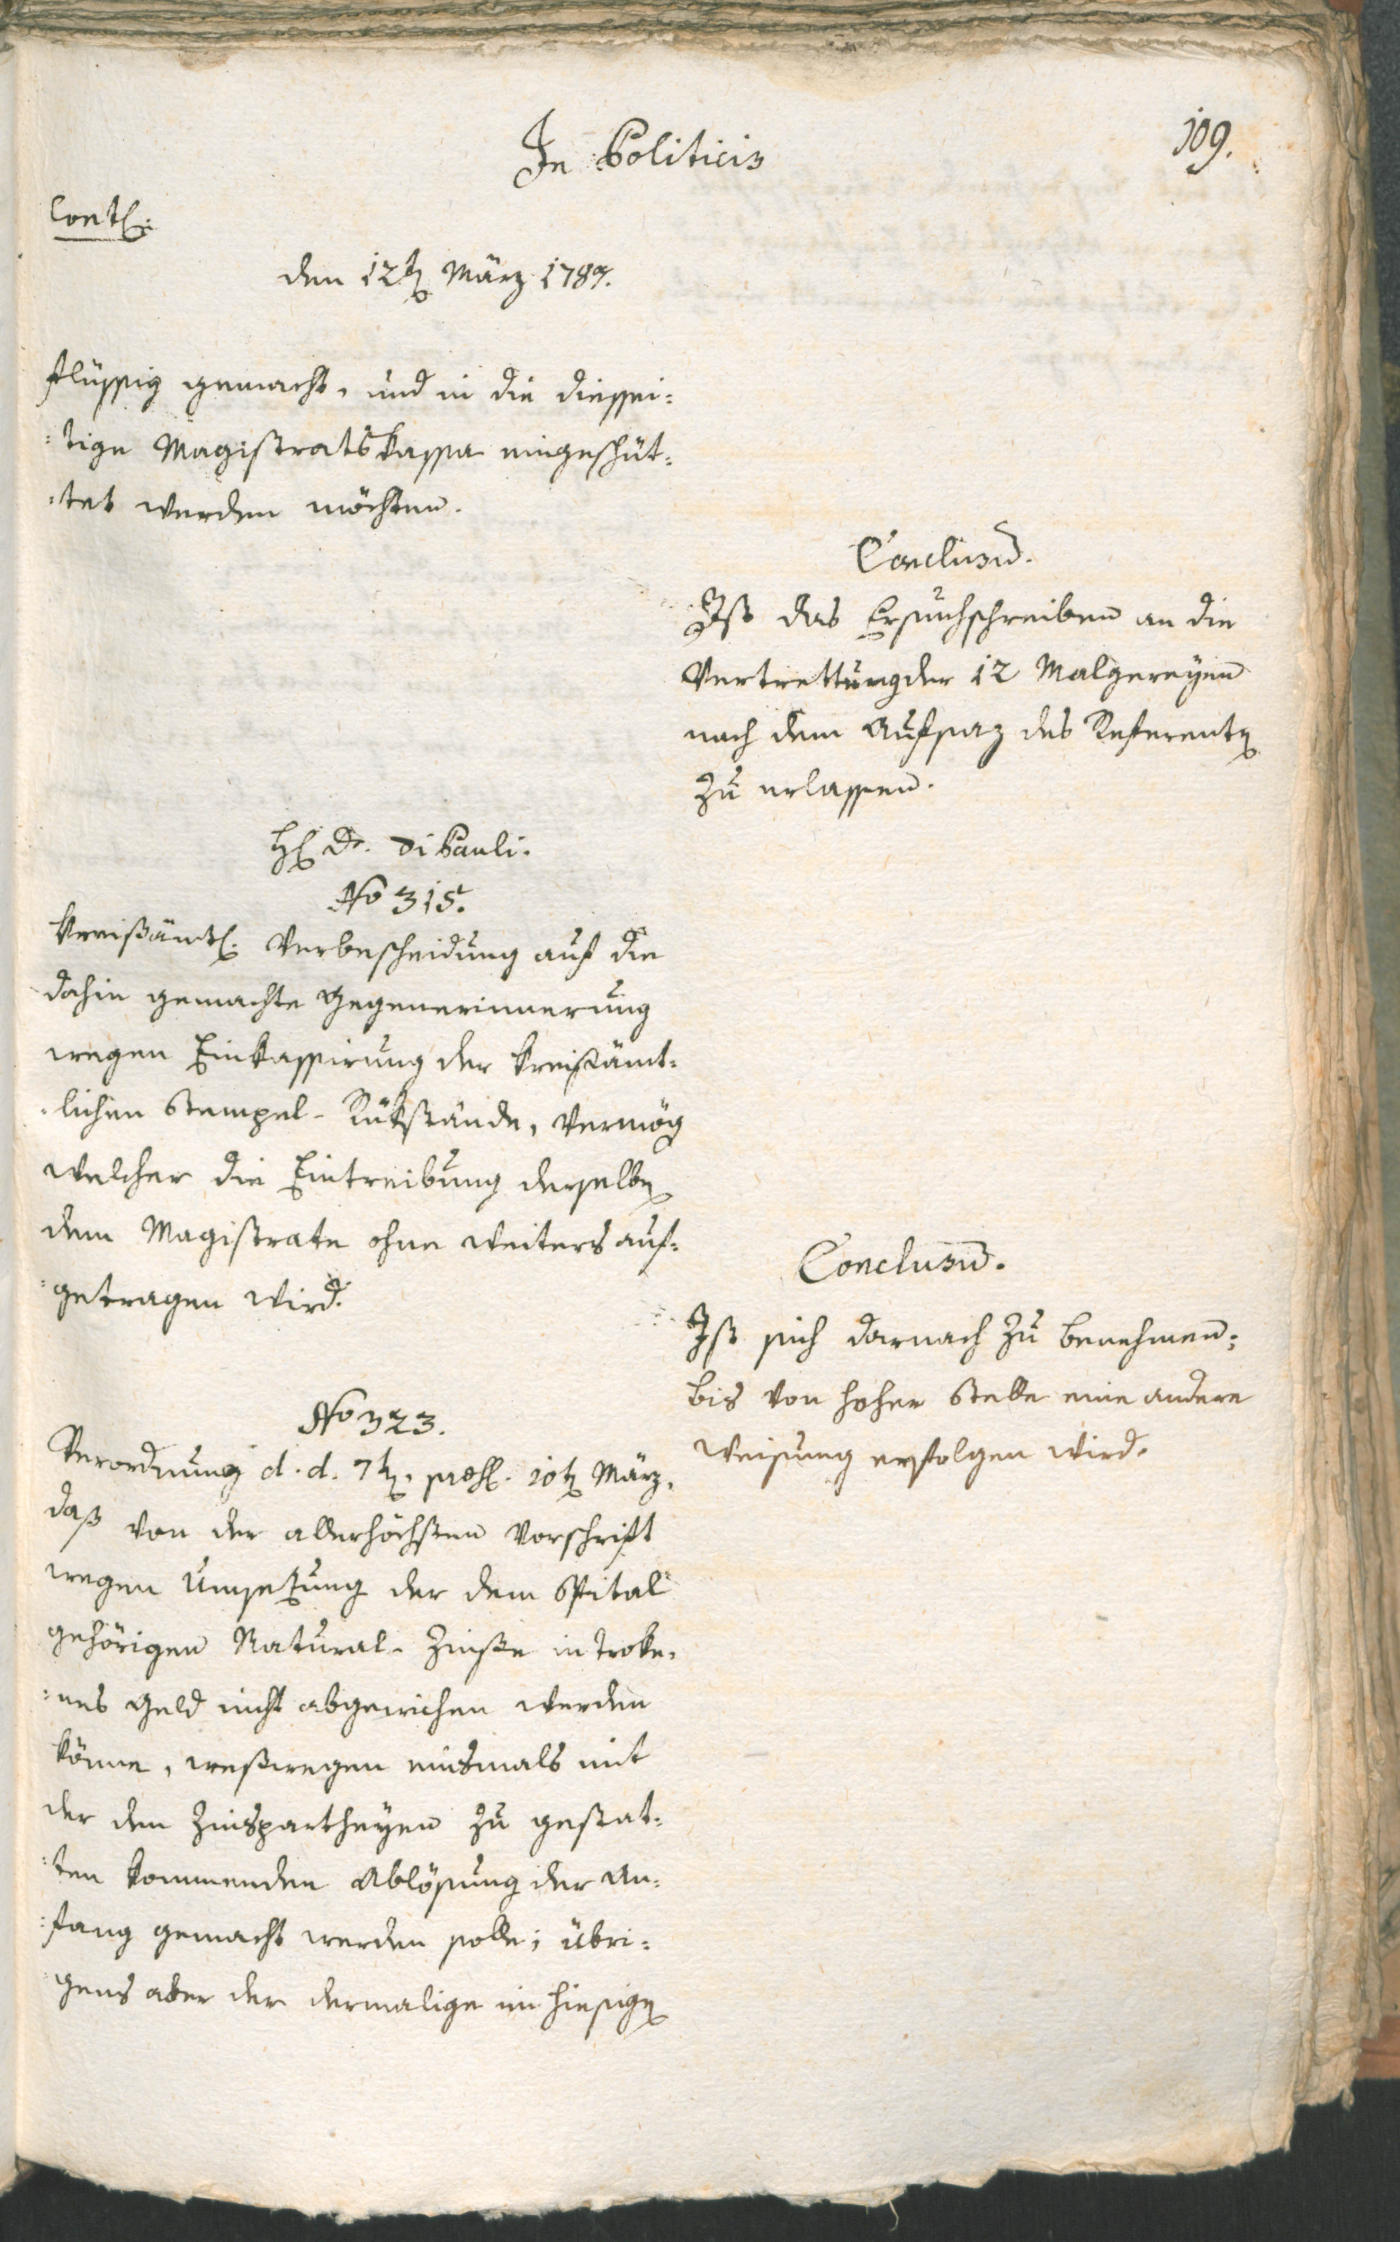 In Politicis
109.
Contl:
den 12ten März 1787.
flüssig gemacht, und in die diessei=
=tige Magistratskassa eingeschüt=
=tet werden möchten.
Conclusum.
Ist das Ersuchschreiben an die
Vertrettung der 12 Malgereyen
nach dem Aufsaz des Referenten
zu erlassen.
Hl Dr. Di Pauli.
No 315.
Kreißämtl. Verbescheidung auf die
dahin gemachte Gegenerinnerung
wegen Einkassirung der kreisämt=
=lichen Stempel-Rükstände, vermög
welcher die Eintreibung derselben
dem Magistrate ohne weiters auf=
=getragen wird.
Conclusum.
Ist sich darnach zu benehmen;
bis von hoher Stelle eine andere
Weisung erfolgen wird.
No 323.
Verordnung d. d. 7ten, præs. 10ten März,
daß von der allerhöchsten Vorschrift
wegen Umsetzung der dem Spital
gehörigen Natural-Zinße in troke=
=nes Geld nicht abgewichen werden
könne, weßwegen einsmals mit
der den Zinspartheyen zu gestat=
=ten kommenden Ablösung der An=
=fang gemacht werden solle; übri=
gens aber der dermalige im hiesigen